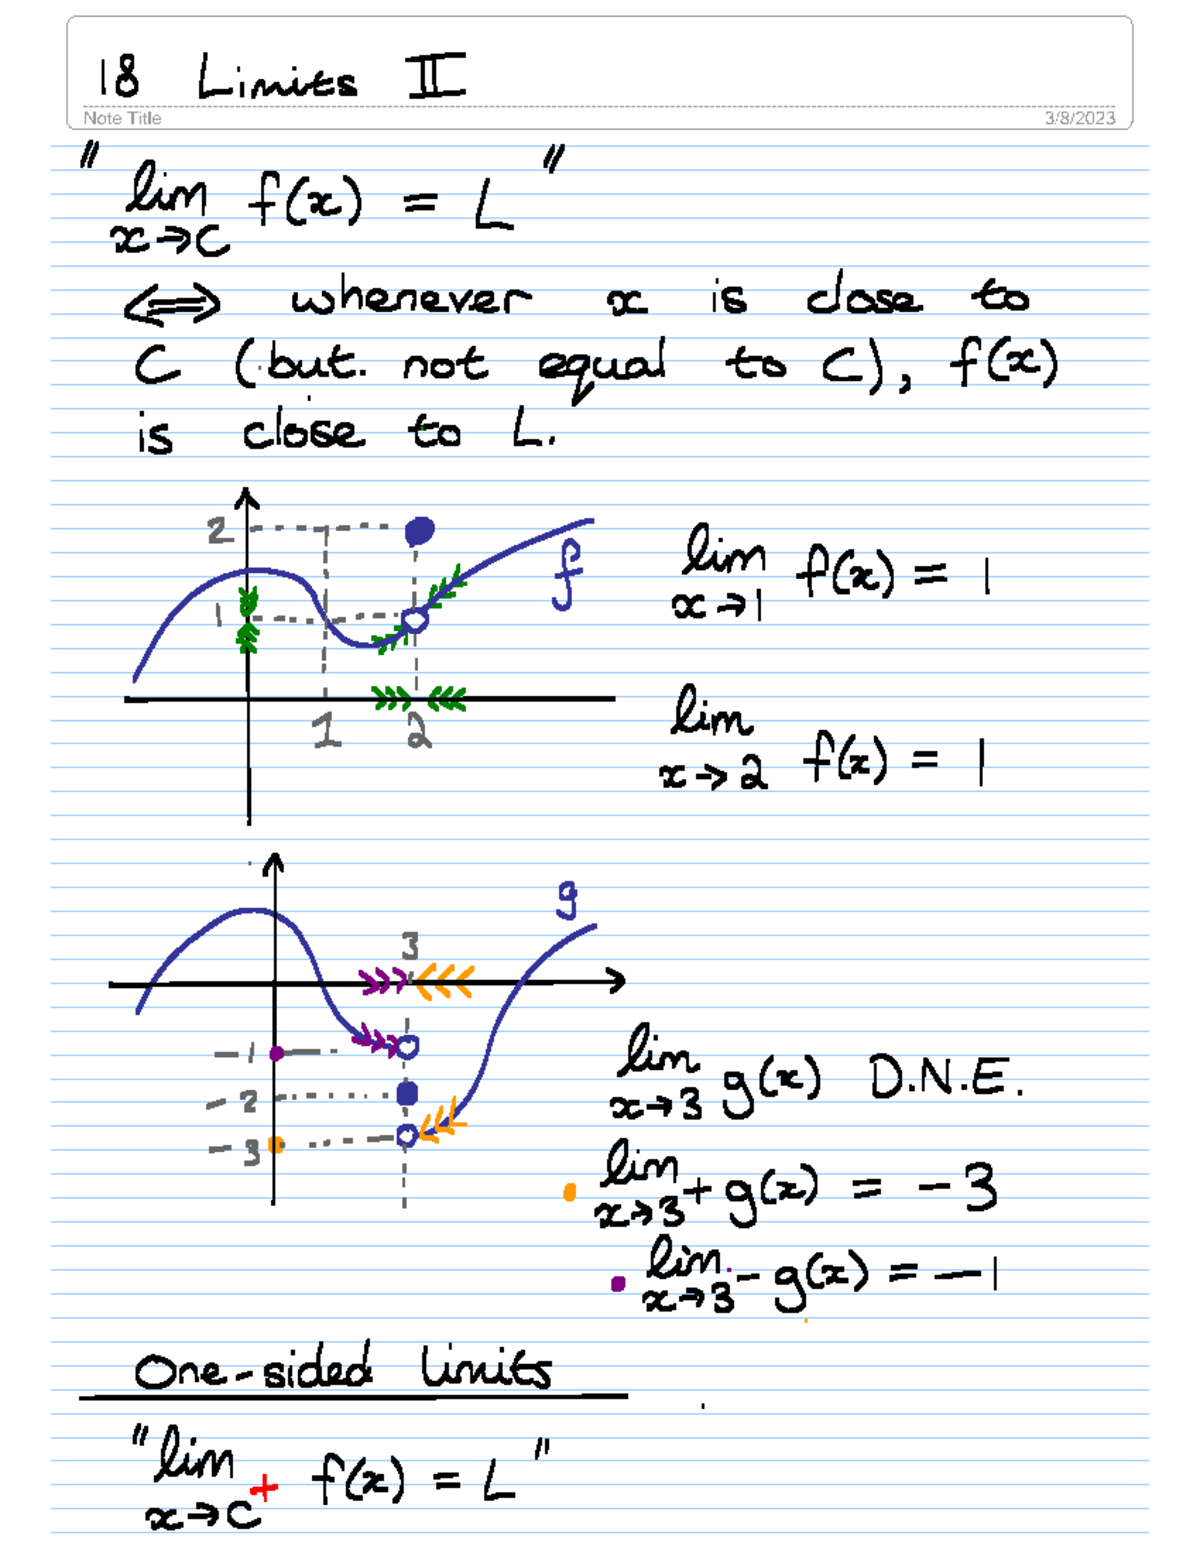 18 Limits II
Note Title
3/8/2023
"lim f(x) = L"
x→C
⟺ whenever x is close to
C (but. not equal to C), f(x)
is close to L.
2
1
1 2
f
lim f(x) = 1
x→1
lim
x→2 f(x) = 1
g
3
-1
-2
-3
lim g(x) D.N.E.
x→3
lim g(x) = -3
x→3+
lim g(x) = -1
x→3-
One-sided limits
"lim f(x) = L"
x→C+